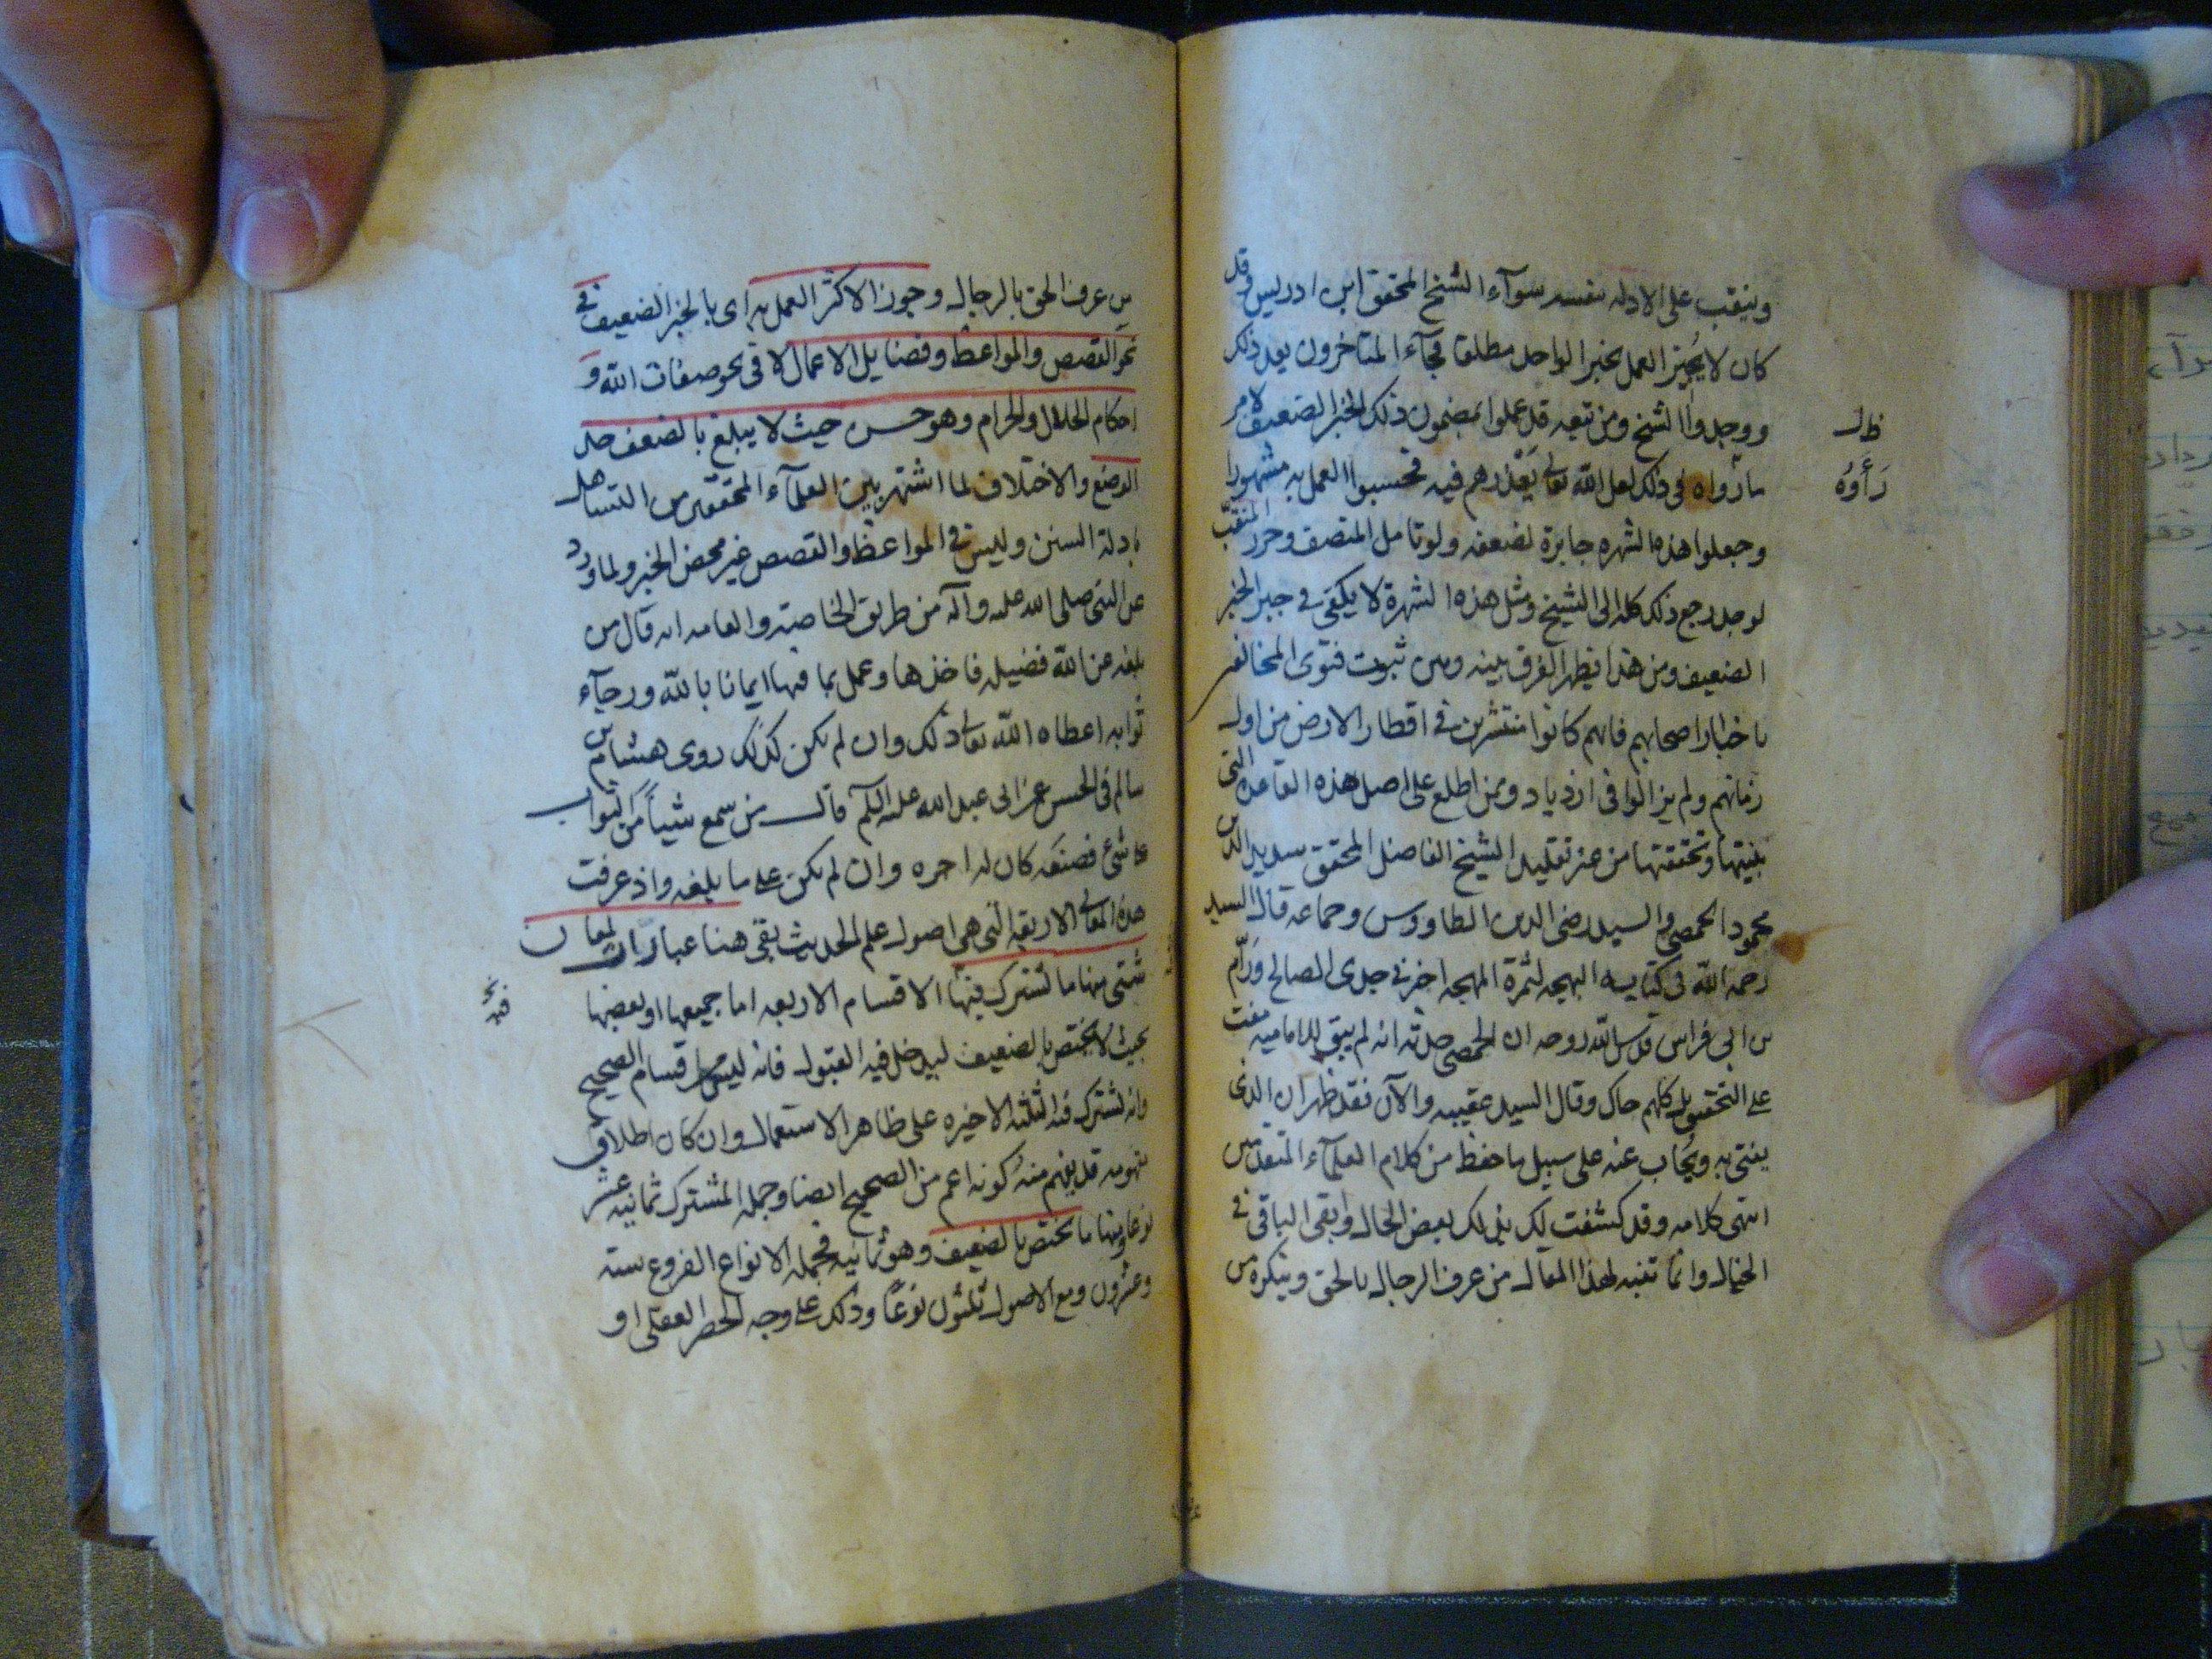 وينقب على الادله بنفسه سوآء الشيخ المحقق ابن ادريس وقد
كان لا يُجيز العمل بخبر الواحد مطلقا فجآء المتاخرون بعد ذلك
ووجدوا الشيخ ومن تبعه قد عملوا بمضمون ذلك الخبر الضعيف لامر
ما رواه فى ذلك لعل الله تعالى يَعْذرهم فيه فحسبوا العمل به مشهورا
وجعلوا هذه الشهره جابرة لضعفه ولو تامل المنصف وحرر المنقّب
لوجد رجع ذلك كله الى الشيخ ومثل هذه الشهرة لا يكفى فى جبر الخبر
الضعيف ومن هذا يظهر الفرق بينه وبين ثبوت فتوى المخالفين
باخبار اصحابهم فانهم كانوا منتشرين فى اقطار الارض من اول
زمانهم ولم يزالوا فى ازدياد وممن اطلع على اصل هذه القاعده التى
بنيتها وتحققتها من غير تقليد الشيخ الفاضل المحقق سديد الدين
محمود الحمصى والسيد رضى الدين الطاووس وجماعه قال السيد
رحمه الله فى كتابه البهجه لثمرة المهجه اخبرنى جدى الصالح ورّام
بن ابى فراس قدس الله روحه ان الحمصى حدثه انه لم يبق للاماميه مفت
على التحقيق بل كلهم حاك وقال السيد عقيبه والآن فقد ظهر ان الذى
يفتى به ويُجاب عنه على سبيل ما حفظ من كلام العلمآء المتقدمين
انتهى كلامه وقد كشفت لك بذلك بعض الحال وابقى الباقى فى
الخيال وانما تنبه لهذا المقال من عرف الرجال بالحق وينكره من
ظ ل
رَأَوْهُ
من عرف الحق بالرجال وجوز الاكثر العمل به اى بالخبر الضعيف فى
نحو القصص والمواعظ وفضايل الاعمال لا فى نحو صفات الله و
احكام الحلال والحرام وهو حسن حيث لا يبلغ بالضعف حد
الوضع والاختلاف لما اشتهر بين العلمآء المحققين من التساهل
بادلة السنن وليس فى المواعظ والقصص غير محض الخبر ولما ورد
عن النبى صلى الله عليه وآله من طريق الخاصة والعامه انه قال من
بلغه عن الله فضيله فاخذها وعمل بما فيها ايمانا بالله ورجآء
ثوابه اعطاه الله تعالى ذلك وان لم يكن كذلك روى هشام بن
سالم فى الحسن عن ابى عبد الله عليه السلم قال من سمع شيأ من الثواب
على شئ فصنعه كان له اجره وان لم يكن على ما بلغه واذ عرفت
هذه المعانى الاربعه التى هى اصول علم الحديث بقى هنا عبارات لمعان
شتى منها ما تشترك فيها الاقسام الاربعه اما جميعها او بعضها
بحيث لا يختص بالضعيف ليدخل فيه القبول فانه ليس من اقسام الصحيح
وانه تشترك فيه الثلثه الاخيره على ظاهر الاستعمال وان كان اطلاق
مفهومه قد يفهم منه كونه اعم من الصحيح ايضا وجمله المشترك ثمانيه عشر
نوعا ومنها ما يختص بالضعيف وهو ثمانيه فجمله الانواع الفروع سته
وعشرون ومع الاصول ثلثون نوعاً وذلك على وجه الحصر العقلى او
فيه